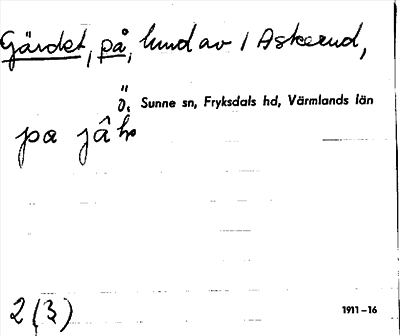 Gärdet, på, hmd av 1 Askerud,
Ö. Sunne sn, Fryksdals hd, Värmlands län
pa
2(3)
1911–16